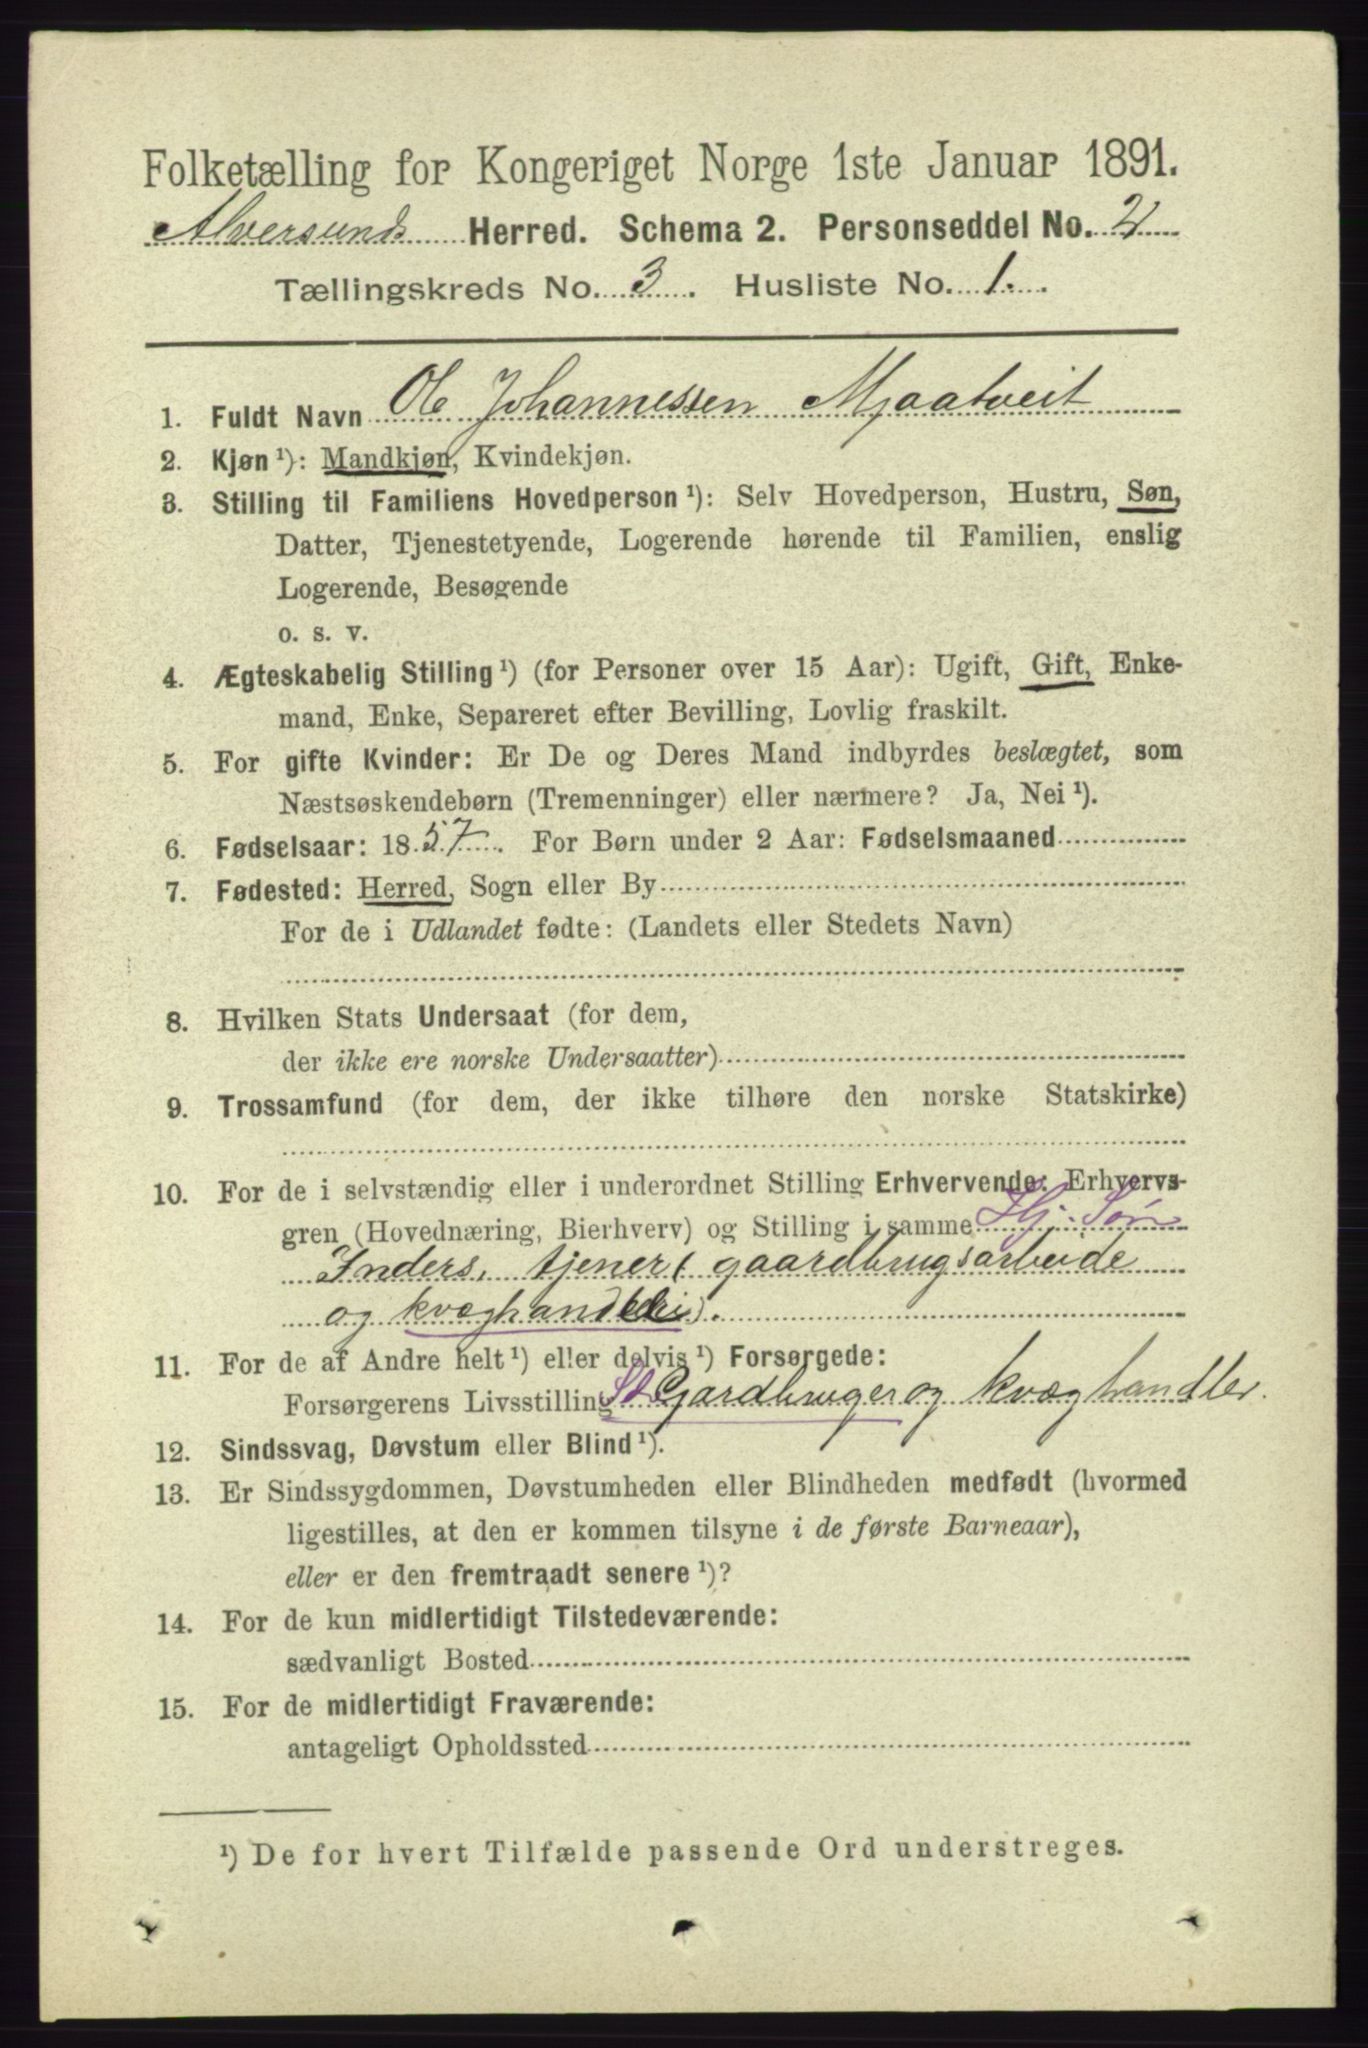 Folketælling for Kongeriget Norge 1ste Januar 1891.
Alversunds Herred. Schema 2. Personseddel No. 2
Tællingskreds No. 3. Husliste No. 1.
1. Fuldt Navn Ole Johannessen Mjaatveit
2. Kjøn ¹): Mandkjøn, Kvindekjøn.
3. Stilling til Familiens Hovedperson ¹): Selv Hovedperson, Hustru, Søn,
Datter, Tjenestetyende, Logerende hørende til Familien, enslig
Logerende, Besøgende
o. s. v.
4. Ægteskabelig Stilling ¹) (for Personer over 15 Aar): Ugift, Gift, Enke-
mand, Enke, Separeret efter Bevilling, Lovlig fraskilt.
5. For gifte Kvinder: Er De og Deres Mand indbyrdes beslægtet, som
Næstsøskendebørn (Tremenninger) eller nærmere? Ja, Nei ¹).
6. Fødselsaar: 1857. For Børn under 2 Aar: Fødselsmaaned
7. Fødested: Herred, Sogn eller By
For de i Udlandet fødte: (Landets eller Stedets Navn)
8. Hvilken Stats Undersaat (for dem,
der ikke ere norske Undersaatter)
9. Trossamfund (for dem, der ikke tilhøre den norske Statskirke)
10. For de i selvstændig eller i underordnet Stilling Erhvervende: Erhvervs-
gren (Hovednæring, Bierhverv) og Stilling i samme Hj. Søn
Inders. tjener ( gaardbrugsarbeide
og kvæghandleri).
11. For de af Andre helt ¹) eller delvis ¹) Forsørgede:
Forsørgerens Livsstilling Gardbruger og kvæghandler.
12. Sindssvag, Døvstum eller Blind ¹).
13. Er Sindssygdommen, Døvstumheden eller Blindheden medfødt (hvormed
ligestilles, at den er kommen tilsyne i de første Barneaar),
eller er den fremtraadt senere ¹)?
14. For de kun midlertidigt Tilstedeværende:
sædvanligt Bosted
15. For de midlertidigt Fraværende:
antageligt Opholdssted
¹) De for hvert Tilfælde passende Ord understreges.